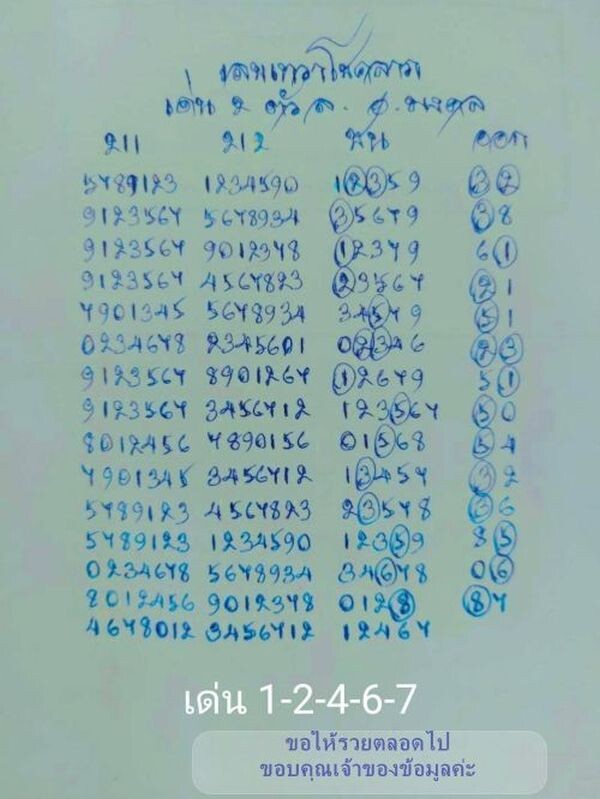 เด่น 2 ตัว ล.
211 212 ชน ออก
5789123 1234590 12359 32
9123567 5678934 35679 38
9123567 9012378 12379 61
9123567 4567823 23567 21
7901345 5678934 34579 51
0234678 2345601 02346 23
9123567 8901267 12679 51
9123567 3456712 123567 50
8012456 7890156 01568 54
7901345 3456712 13457 32
5789123 4567823 23578 36
5789123 1234590 12359 85
0234678 5678934 34678 06
8012456 9012378 0128 87
4678012 3456712 12467
เด่น 1-2-4-6-7
ขอให้รวยตลอดไป
ขอบคุณเจ้าของข้อมูลค่ะ